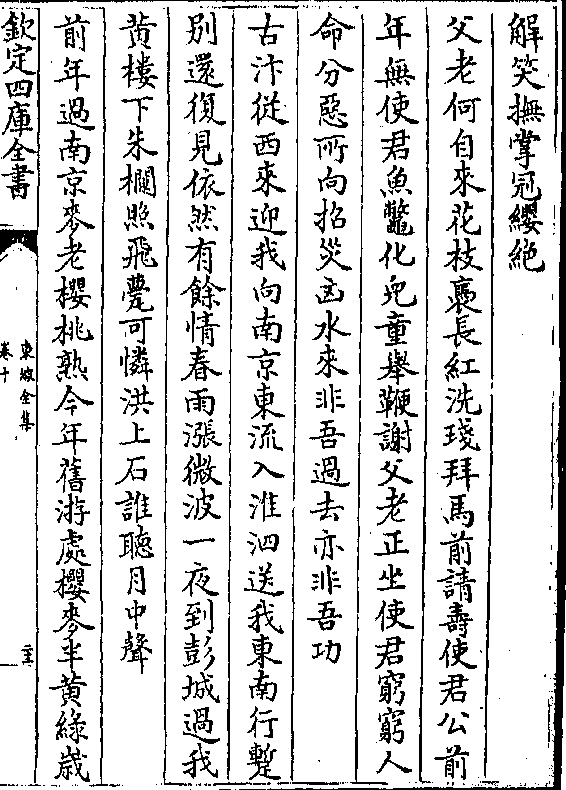 解笑撫掌冠纓絶
父老何自來花枝裊長紅洗琖拜馬前請壽使君公前
年無使君魚鼈化兒童舉鞭謝父老正坐使君窮窮人
命分惡所向招災凶水來非吾過去亦非吾功
古汴從西來迎我向南京東流入淮泗送我東南行蹔
别還復見依然有餘情春雨漲微波一夜到彭城過我
黄樓下朱欄照飛甍可憐洪上石誰聽月中聲
前年過南京麥老櫻桃熟今年舊游處櫻麥半黄綠歲
欽定四庫全書
東坡全集
卷十